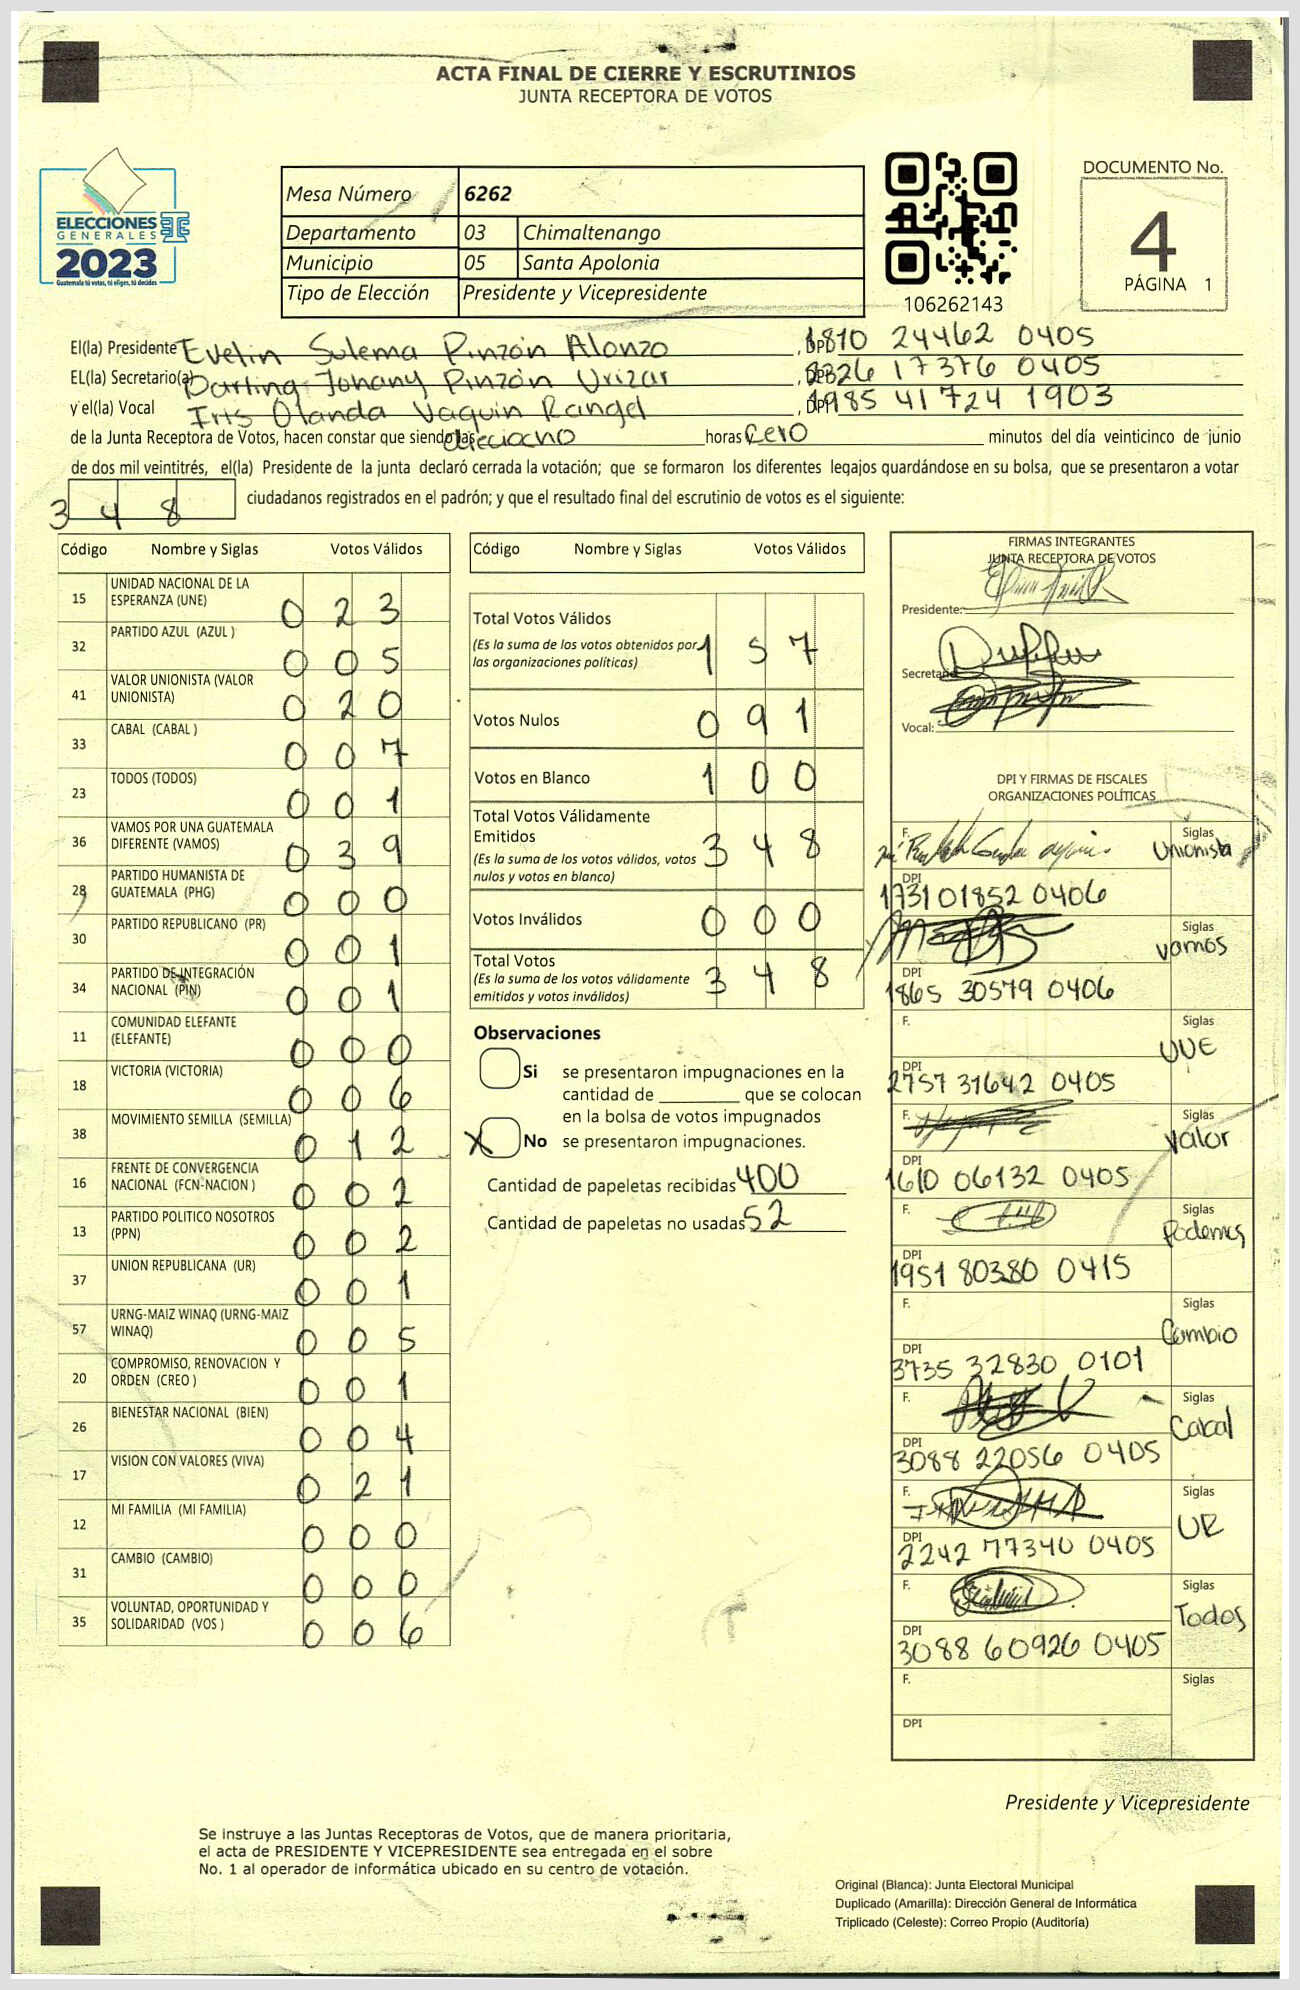 ACTA FINAL DE CIERRE Y ESCRUTINIOS
JUNTA RECEPTORA DE VOTOS
ELECCIONES
GENERALES
2023
Guatemala tú votas, tú eliges, tú decides
Mesa Número 6262
Departamento 03 Chimaltenango
Municipio 05 Santa Apolonia
Tipo de Elección Presidente y Vicepresidente
106262143
DOCUMENTO No.
4
PÁGINA 1
El(la) Presidente Evelin Sulema Pinzón Alonzo, DPI 1810 24462 0405
EL(la) Secretario(a) Darling Johany Pinzón Urizar, DPI 2326 17376 0405
y el(la) Vocal Iris Olanda Vaquin Rangel, DPI 1985 41724 1903
de la Junta Receptora de Votos, hacen constar que siendo las dieciocho horas y cero minutos del día veinticinco de junio
de dos mil veintitrés, el(la) Presidente de la junta declaró cerrada la votación; que se formaron los diferentes legajos quardándose en su bolsa, que se presentaron a votar
348 ciudadanos registrados en el padrón; y que el resultado final del escrutinio de votos es el siguiente:
Código Nombre y Siglas Votos Válidos
15 UNIDAD NACIONAL DE LA ESPERANZA (UNE) 023
32 PARTIDO AZUL (AZUL ) 005
41 VALOR UNIONISTA (VALOR UNIONISTA) 020
33 CABAL (CABAL ) 007
23 TODOS (TODOS) 001
36 VAMOS POR UNA GUATEMALA DIFERENTE (VAMOS) 039
28 PARTIDO HUMANISTA DE GUATEMALA (PHG) 000
30 PARTIDO REPUBLICANO (PR) 001
34 PARTIDO DE INTEGRACIÓN NACIONAL (PIN) 001
11 COMUNIDAD ELEFANTE (ELEFANTE) 000
18 VICTORIA (VICTORIA) 006
38 MOVIMIENTO SEMILLA (SEMILLA) 012
16 FRENTE DE CONVERGENCIA NACIONAL (FCN-NACION ) 002
13 PARTIDO POLITICO NOSOTROS (PPN) 002
37 UNION REPUBLICANA (UR) 001
57 URNG-MAIZ WINAQ (URNG-MAIZ WINAQ) 005
20 COMPROMISO, RENOVACION Y ORDEN (CREO ) 001
26 BIENESTAR NACIONAL (BIEN) 004
17 VISION CON VALORES (VIVA) 021
12 MI FAMILIA (MI FAMILIA) 000
31 CAMBIO (CAMBIO) 000
35 VOLUNTAD, OPORTUNIDAD Y SOLIDARIDAD (VOS ) 006
Código Nombre y Siglas Votos Válidos
Total Votos Válidos 157
(Es la suma de los votos obtenidos por
las organizaciones políticas)
Votos Nulos 091
Votos en Blanco 100
Total Votos Válidamente
Emitidos 348
(Es la suma de los votos válidos, votos
nulos y votos en blanco)
Votos Inválidos 000
Total Votos 348
(Es la suma de los votos válidamente
emitidos y votos inválidos)
Observaciones
Si se presentaron impugnaciones en la
cantidad de ________ que se colocan
en la bolsa de votos impugnados
X No se presentaron impugnaciones.
Cantidad de papeletas recibidas 400
Cantidad de papeletas no usadas 52
FIRMAS INTEGRANTES
JUNTA RECEPTORA DE VOTOS
Presidente:
Secretario:
Vocal:
DPI Y FIRMAS DE FISCALES
ORGANIZACIONES POLÍTICAS
F. Siglas Unionista
DPI 1731 01852 0406
Siglas vamos
DPI 1865 30579 0406
F. Siglas UNE
DPI 2757 31642 0405
F. Siglas Valor
DPI 1610 06132 0405
F. Siglas Podemos
DPI 1951 80380 0415
F. Siglas Cambio
DPI 3735 32830 0101
F. Siglas Cabal
DPI 3088 22056 0405
F. Siglas UR
DPI 2242 77340 0405
F. Siglas Todos
DPI 3088 60926 0405
F. Siglas
DPI
Presidente y Vicepresidente
Se instruye a las Juntas Receptoras de Votos, que de manera prioritaria,
el acta de PRESIDENTE Y VICEPRESIDENTE sea entregada en el sobre
No. 1 al operador de informática ubicado en su centro de votación.
Original (Blanca): Junta Electoral Municipal
Duplicado (Amarilla): Dirección General de Informática
Triplicado (Celeste): Correo Propio (Auditoría)